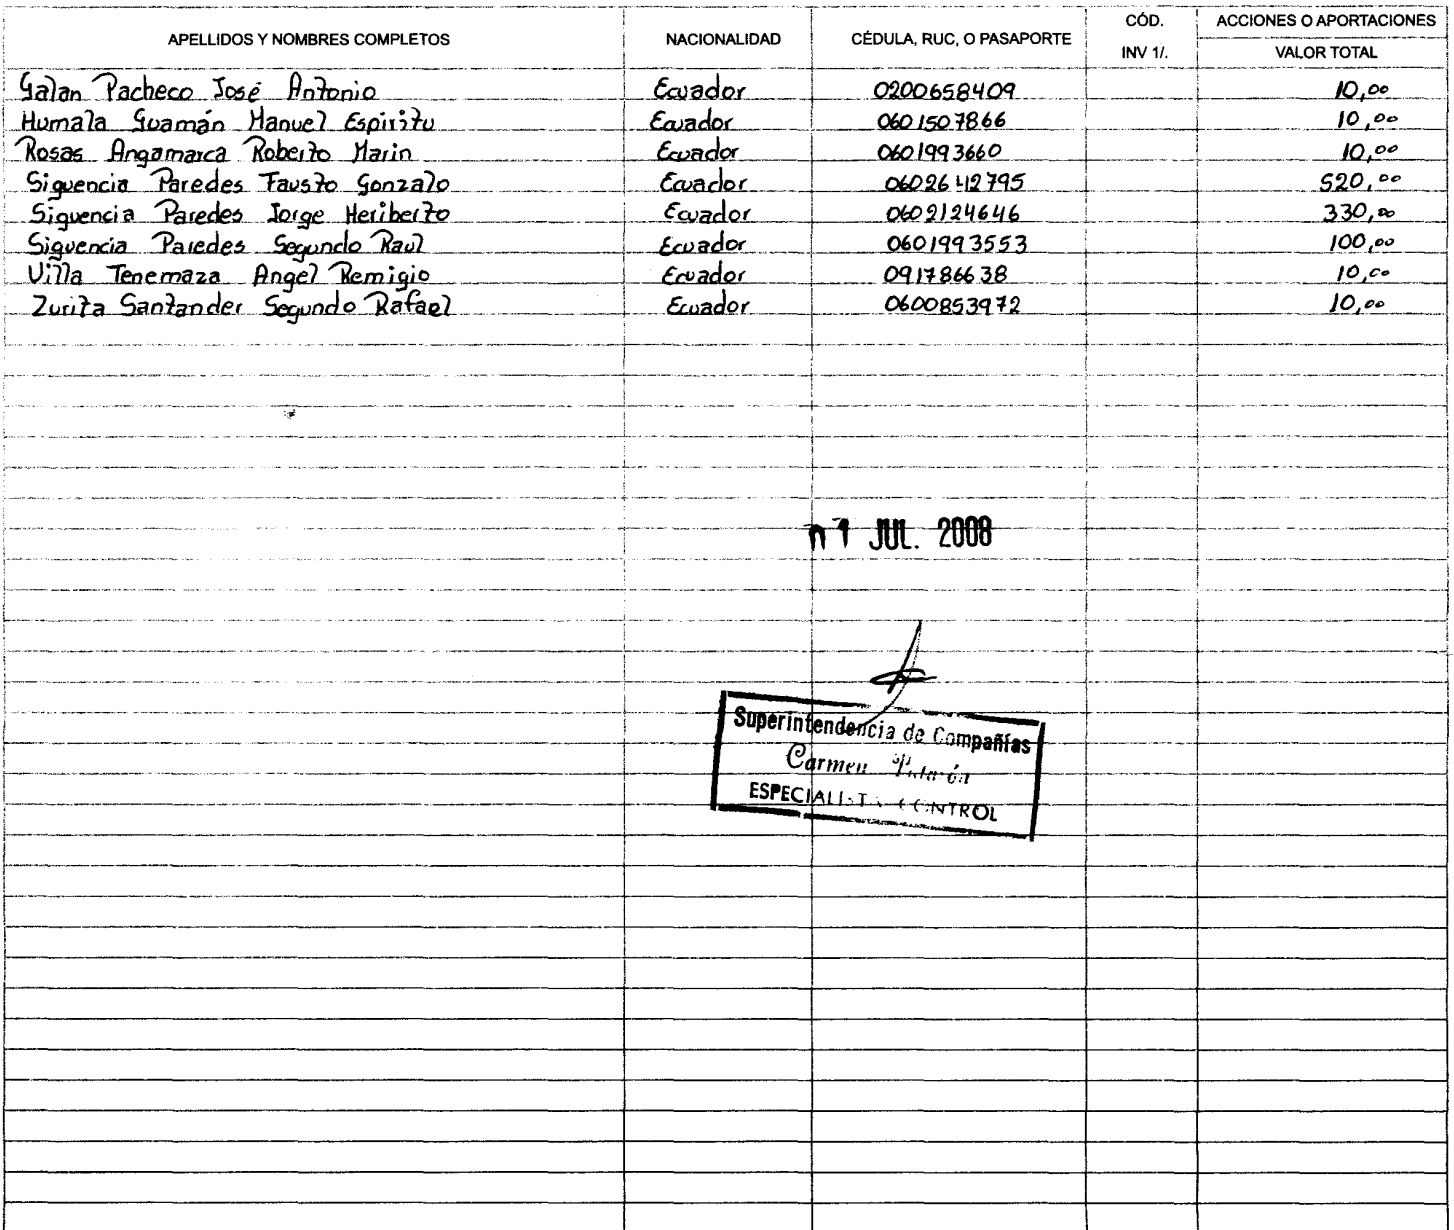 APELLIDOS Y NOMBRES COMPLETOS NACIONALIDAD CÉDULA, RUC, O PASAPORTE CÓD. INV 1/. ACCIONES O APORTACIONES
VALOR TOTAL
Galan Pacheco José Antonio Ecuador 0200658409 10,00
Humala Guamán Manuel Espiritu Ecuador 0601507866 10,00
Rosas Angamarca Roberto Marin Ecuador 0601993660 10,00
Siguencia Paredes Fausto Gonzalo Ecuador 0602642795 520,00
Siguencia Paredes Jorge Heriberto Ecuador 0602124646 330,00
Siguencia Paredes Segundo Raul Ecuador 0601993553 100,00
Villa Tenemaza Angel Remigio Ecuador 091786638 10,00
Zurita Santander Segundo Rafael Ecuador 0600853972 10,00
JUL. 2008
Superintendencia de Compañías
Carmen
ESPECIALISTA CONTROL